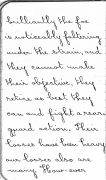 brilliantly the foe
is noticeably faltering
under the strain, and
they cannot make
their objective, they
retire as best they
can and fight a rear
guard action. Their
losses have been heavy
our losses also are
many. However